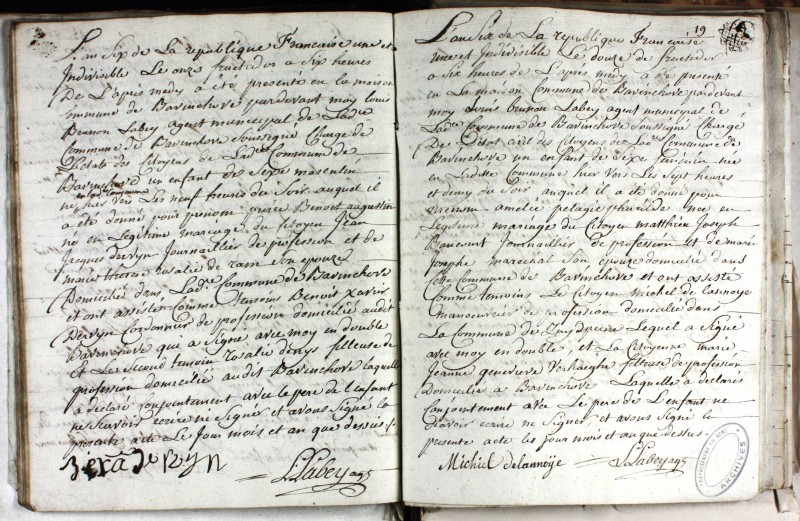 L'an Six de La republique Francaise une et
Indivisible Le onze fructidor a Six heures
De L'apres medy a été presenté en la maison
Commune de Bavinchove pardevant moy Louis
Bennon Labey agent municipal de Ladte
Commune de Bavinchove Soussigné Chargé de
L'etats des Citoyens de Ladte Commune de
Bavinchove un enfant de Sexe masculin
né hier vers Les neuf heures du Soir auquel il
a été donné pour prenom pierre Benoit augustin
né en Legitime mariage du Citoyen Jean
Jacques Deryn Journaillier de profession et de
marie therese rosalie de ram Son epouse
Domicilié dans Ladte Commune de Bavinchove
et ont assisté Comme temoins Benoit xavier
Deryn Cordonnier de profession domicilié audit
Bavinchove qui a Signé avec moy en double
et Le Second temoin rosalie denys filleuse de
profession domicilié audit Bavinchove laquelle
a declaré conjointement avec le pere de l'enfant
ne Scavoir ecrire ne Signer et avons Signé la
presente acte Le Jour mois et an que dessus
L Labey agt
19
L'an Six de La republique Francaise
une et Indivisible Le douze de fructidor
a Six heures de L'apres medy a été presenté
en La maison Commune de Bavinchove pardevant
moy Louis Bennon Labey agent municipal de
Ladte Commune de Bavinchove Soussigné Chargé
De L'etat civil des Citoyens de Ladte Commune de
Bavinchove un enfant de Sexe feminin née
en Ladite Commune hier vers Les Sept heures
et demy du Soir auquel il a été donné pour
prenom amelie pelagie pharailde née en
Legitime mariage du Citoyen matthieu Joseph
Bancourt Journaillier de profession et de marie
Josephe marechal Son epouse domicilié dans
cette Commune de Bavinchove et ont assisté
Comme temoins Le Citoyen michel de lannoye
manoeuvrier de profession domicilié dans
La Commune de Zuydpeene Lequel a Signé
avec moy en double, et La Citoyenne marie
Jeanne genevieve Verhaeghe filleuse de profession
Domicilié a Bavinchove Laquelle a declaré
Conjointement avec Le pere de L'enfant ne
Scavoir ecrire ne Signer et avons Signé la
presente acte les Jour mois et an que dessus
Michiel delannoÿe
L Labey agt
ARCHIVES